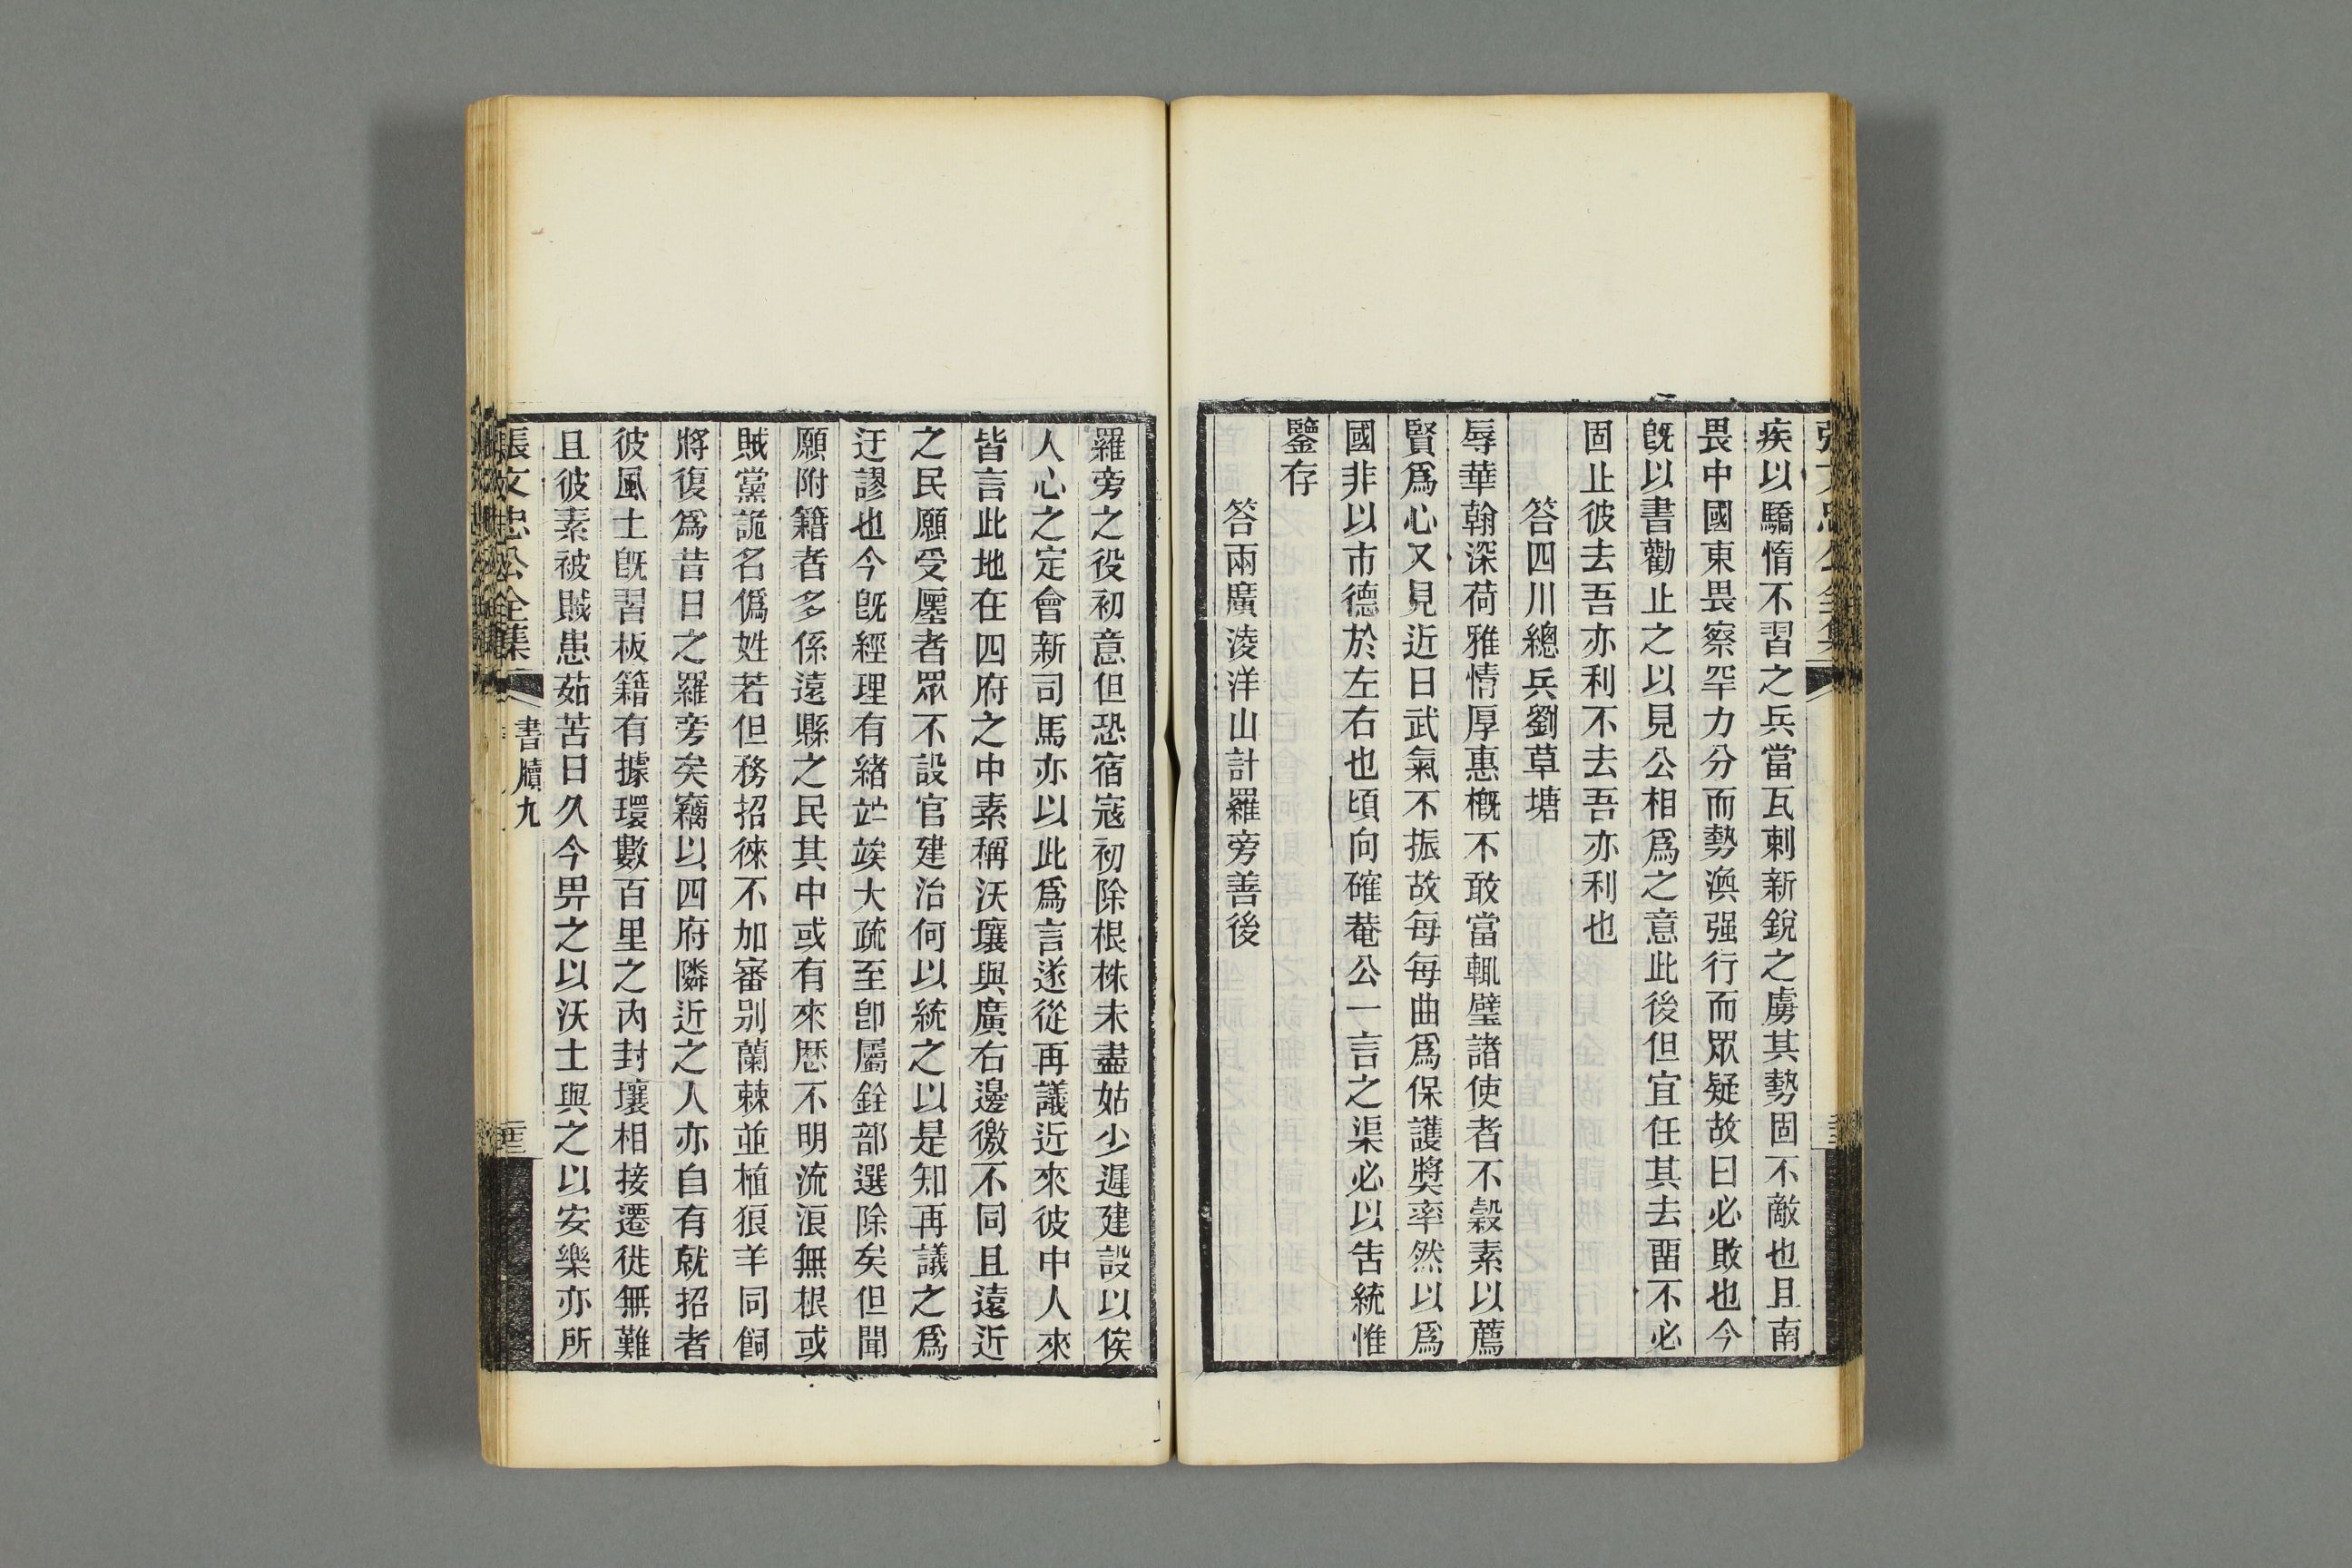 疾以驕惰不習之兵當瓦剌新銳之虜其勢固不敵也且南
畏中國東畏察罕力分而勢渙强行而眾疑故曰必敗也今
既以書勸止之以見公相爲之意此後但宜任其去畱不必
固止彼去吾亦利不去吾亦利也
答四川總兵劉草塘
辱華翰深荷雅情厚惠槪不敢當輒璧諸使者不穀素以薦
賢爲心又見近日武氣不振故每每曲爲保護奬率然以爲
國非以市德於左右也頃向確菴公一言之渠必以告統惟
鑒存
答兩廣淩洋山計羅旁善後
羅旁之役初意但恐宿寇初除根株未盡姑少遲建設以俟
人心之定會新司馬亦以此爲言遂從再議近來彼中人來
皆言此地在四府之中素稱沃壤與廣右邊徼不同且遠近
之民願受廛者眾不設官建治何以統之以是知再議之爲
迂謬也今既經理有緒竚竢大疏至卽屬銓部選除矣但聞
願附籍者多係遠縣之民其中或有來歷不明流浪無根或
賊黨詭名僞姓若但務招徠不加審别蘭棘並植狼羊同飼
將復爲昔日之羅旁矣竊以四府隣近之人亦自有就招者
彼風土既習板籍有據環數百里之內封壤相接遷徙無難
且彼素被賊患茹苦日久今畀之以沃土與之以安樂亦所
張文忠公全集
書牘九